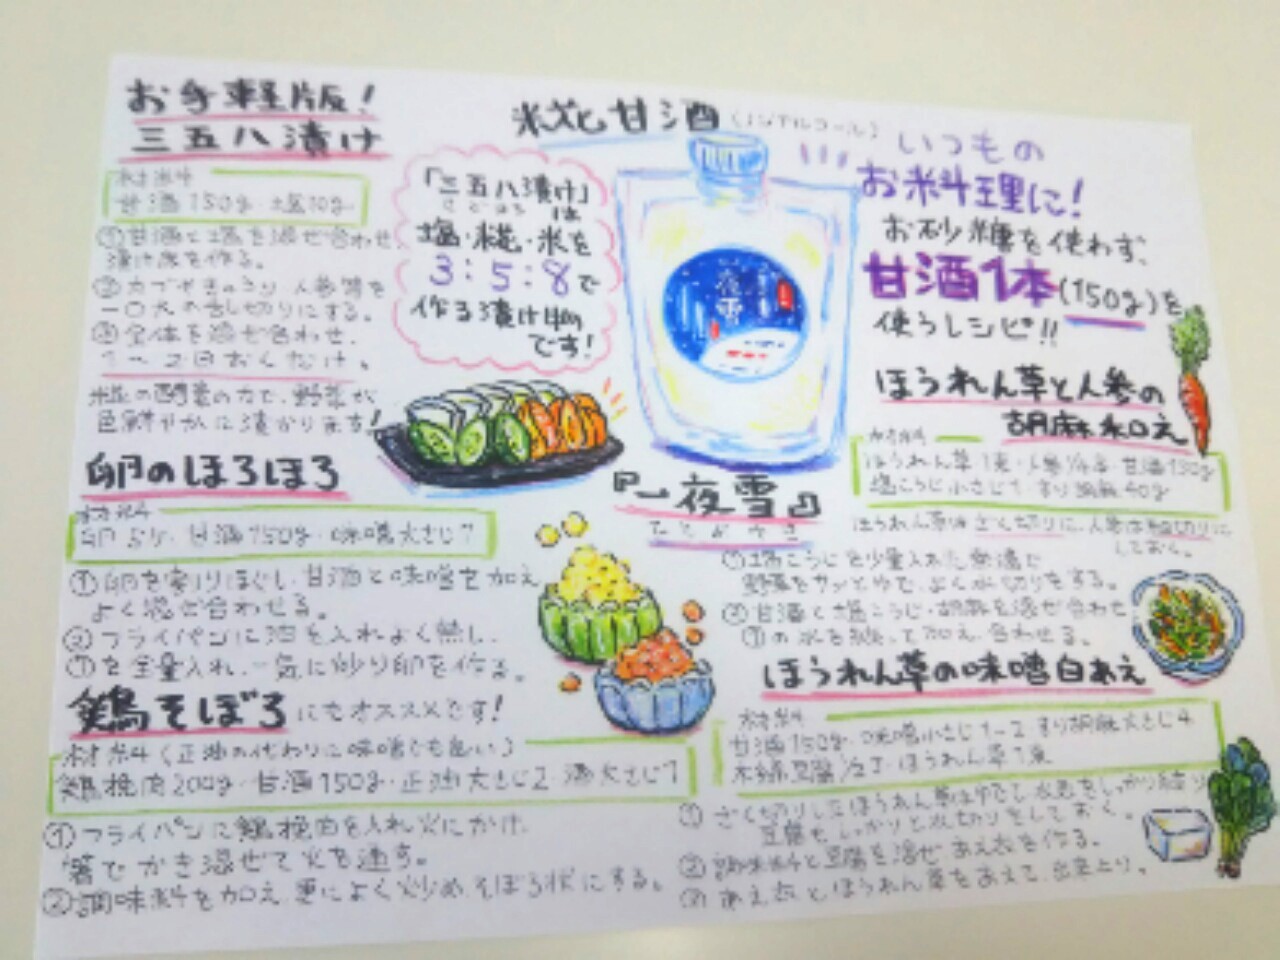 お手軽版！
三五八漬け
材料
甘酒150g・塩10g
①甘酒と塩を混ぜ合わせ
漬け床を作る。
②カブやきゅうり、人参等を
一口大の乱切りにする。
③全体を混ぜ合わせ、
1〜2日おくだけ。
糀の酵素の力で、野菜が
色鮮やかに漬かります！
「三五八漬け」
は
塩・糀・米を
3:5:8で
作る漬け物
です！
糀甘酒（ノンアルコール）
一夜雪
『一夜雪』
いつもの
お料理に！
お砂糖を使わず、
甘酒1本(150g)を
使うレシピ!!
卵のほろほろ
材料
甘酒150g・味噌大さじ1
①卵を割りほぐし、甘酒と味噌を加え
よく混ぜ合わせる。
②フライパンに油を入れよく熱し、
①を全量入れ、一気に炒り卵を作る。
鶏そぼろにもオススメです！
材料（正油の代わりに味噌でも良い）
鶏挽肉200g・甘酒150g・正油大さじ2・酒大さじ1
①フライパンに鶏挽肉を入れ火にかけ
箸でかき混ぜて火を通す。
②調味料を加え、更によく炒めそぼろ状にする。
ほうれん草と人参の
胡麻和え
材料
ほうれん草1束・人参1/4本・甘酒150g
塩こうじ小さじ1・すり胡麻40g
ほうれん草はざく切りに、人参は細切りに
しておく。
①塩こうじを少量入れた熱湯で
野菜をサッとゆで、よく水切りをする。
②甘酒と塩こうじ・胡麻を混ぜ合わせ
①の水を絞って加え、合わせる。
ほうれん草の味噌白あえ
材料
甘酒150g・味噌小さじ1〜2・すり胡麻大さじ4
木綿豆腐1/2丁・ほうれん草1束
①ざく切りしたほうれん草はゆでて、水気をしっかり絞り
豆腐も、しっかりと水切りをしておく。
②調味料と豆腐を混ぜ、あえ衣を作る。
③あえ衣とほうれん草をあえて、出来上り。